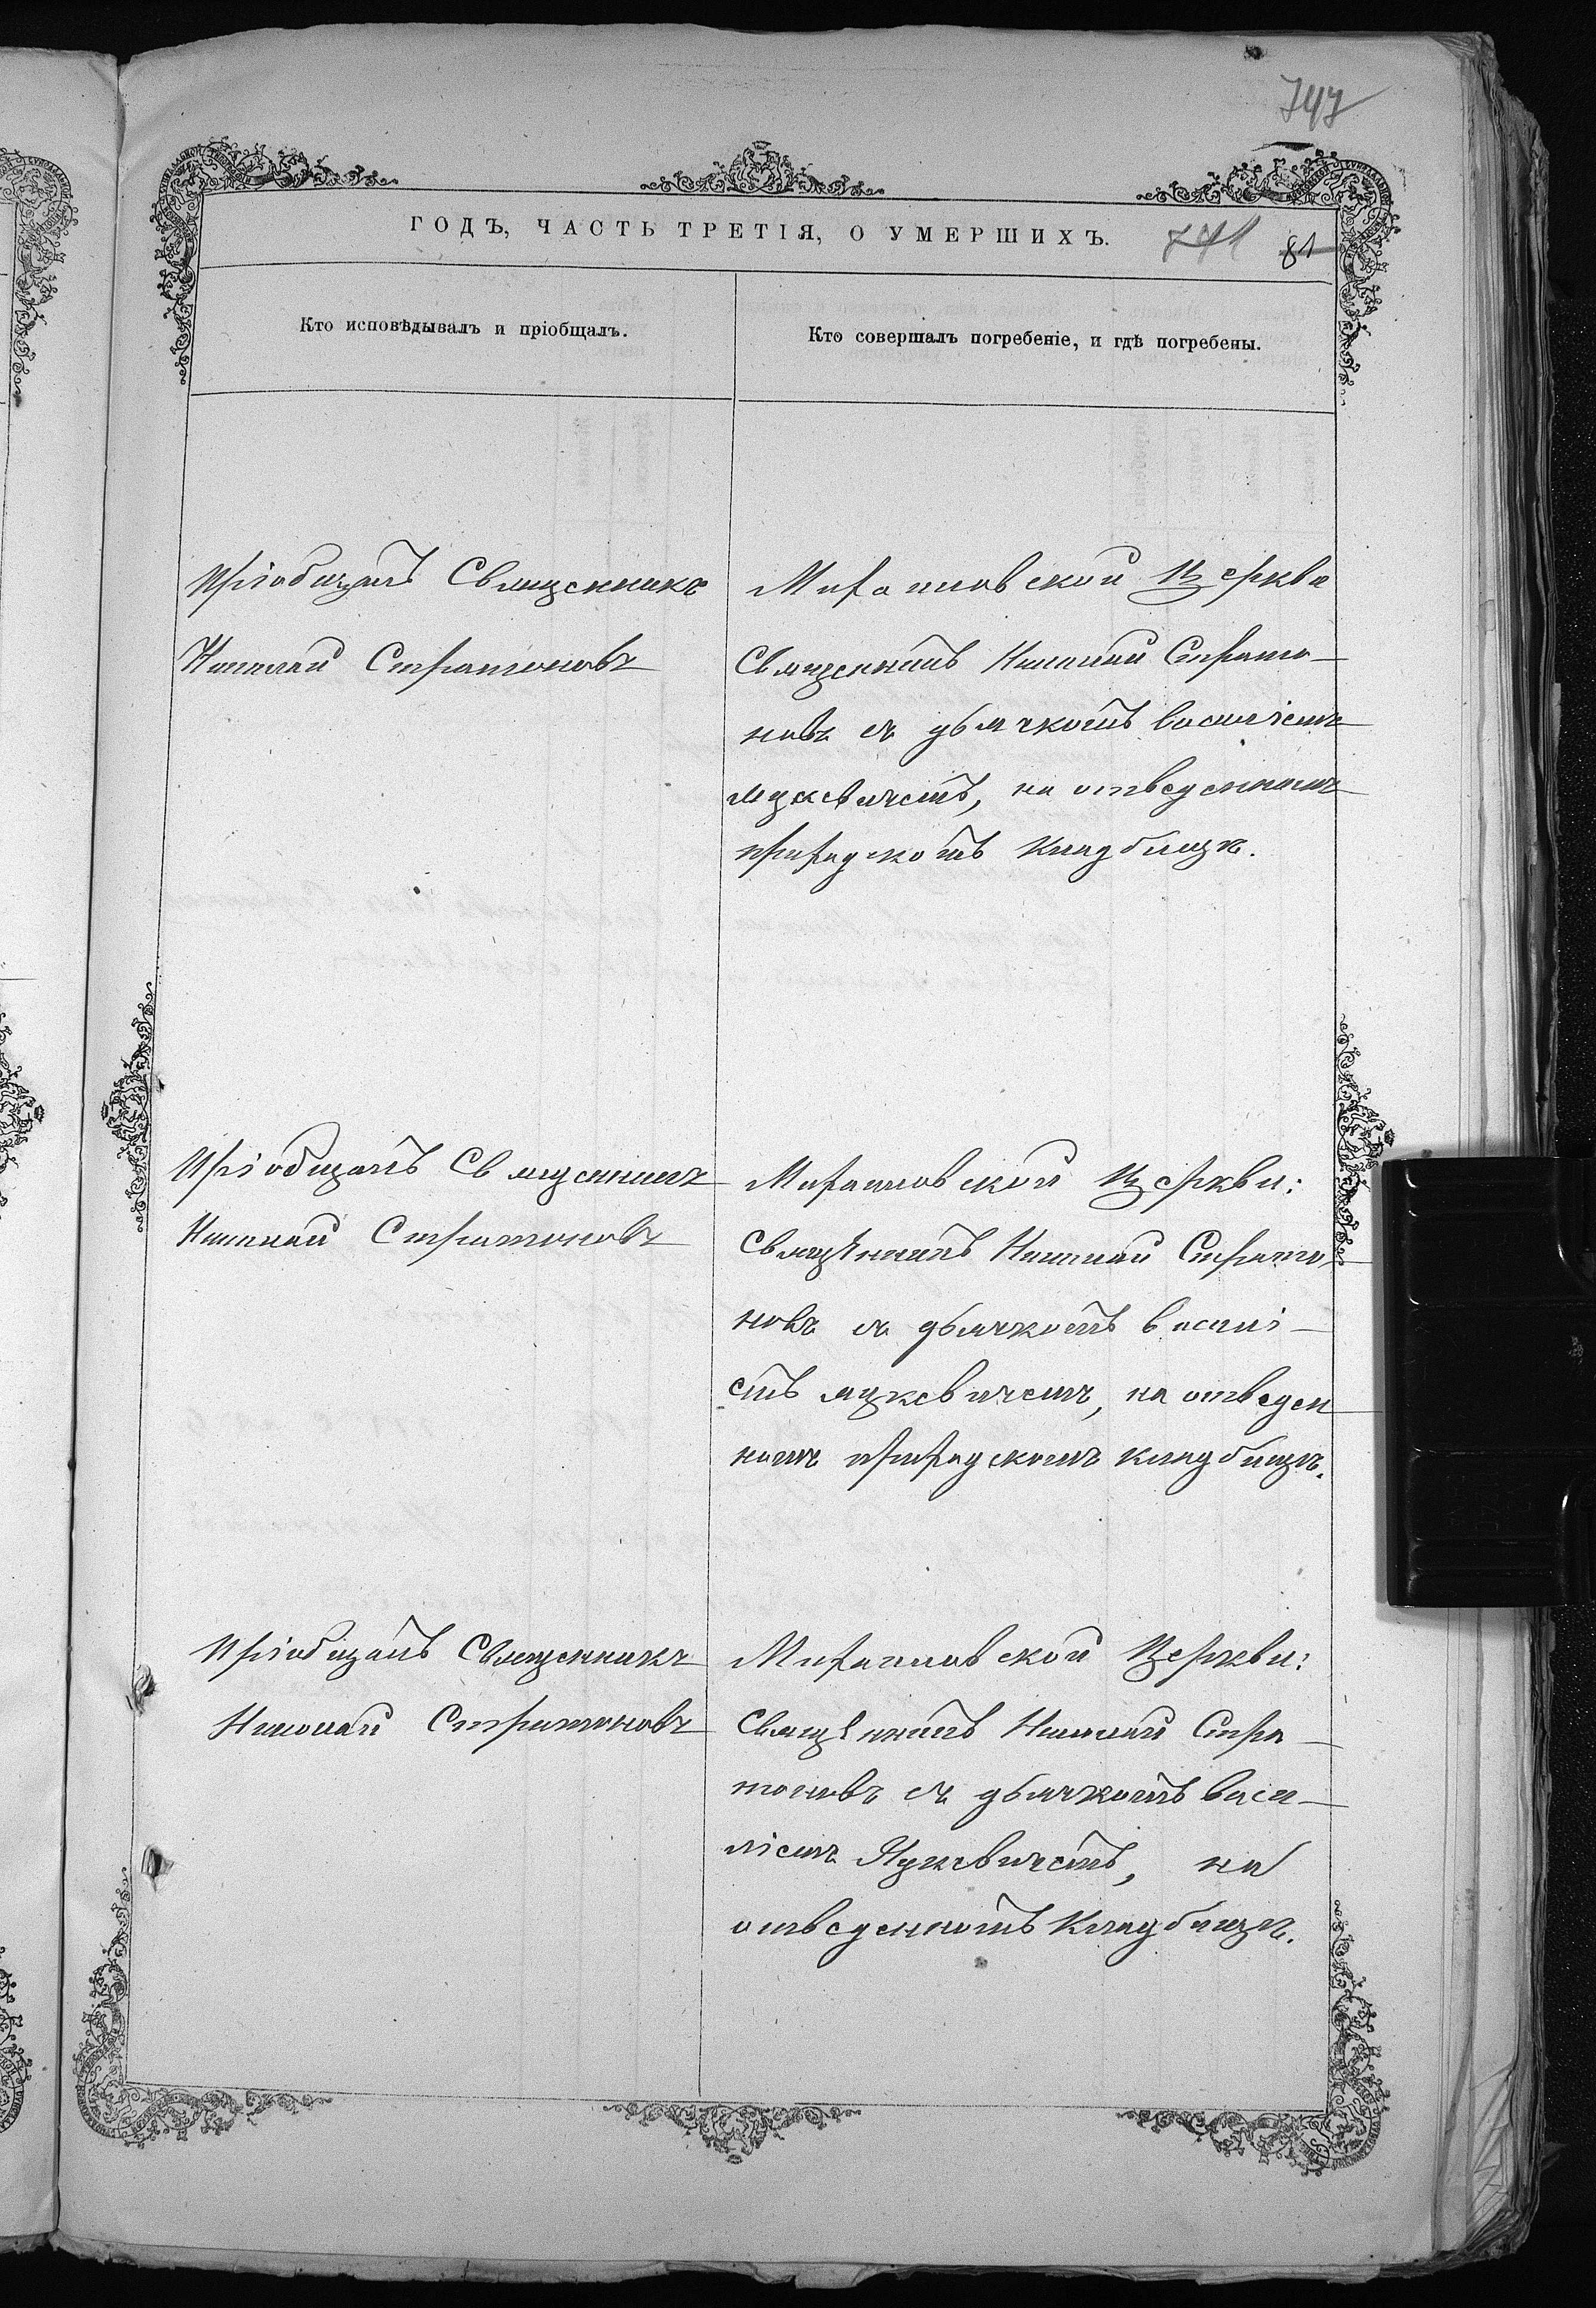 747
ГОДЪ, ЧАСТЬ ТРЕТІЯ, О УМЕРШИХЪ.
741 81
Кто исповѣдывалъ и пріобщалъ.
Кто совершалъ погребеніе, и гдѣ погребены.
Пріобщалъ Священникъ
Николай Стратоновъ
Церкви
Священникъ Николай Страто-
новъ съ дьячкомъ Василіемъ
на отведенномъ
приходскомъ Кладбищѣ.
Пріобщалъ Священникъ
Николай Стратоновъ
Церкви:
Священникъ Николай Страто-
новъ съ дьячкомъ Василі-
емъ на отведен
номъ приходскомъ кладбищѣ.
Пріобщалъ Священникъ
Николай Стратоновъ
Церкви:
Священникъ Николай Стра-
тоновъ съ дьячкомъ Васи-
ліемъ на
отведенномъ Кладбищѣ.